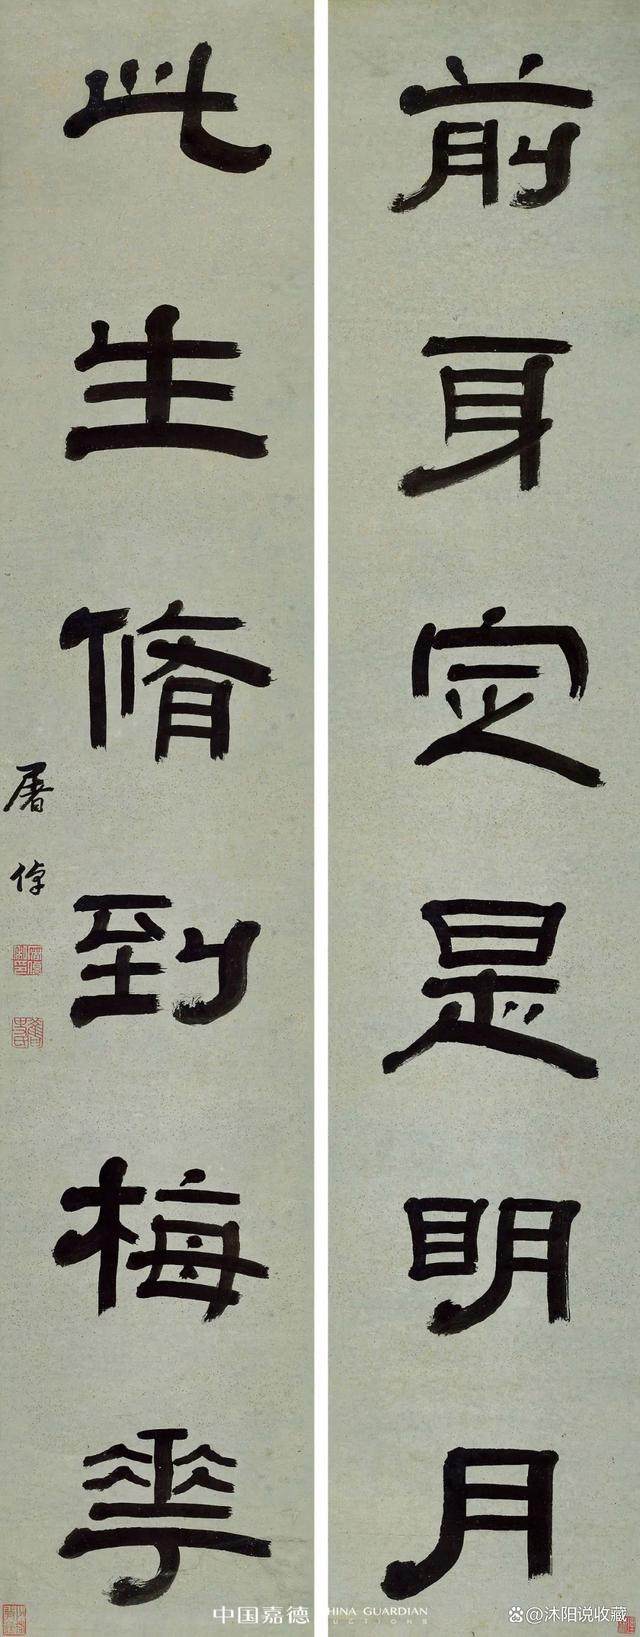 前身定是明月
此生脩到梅華
屠倬
中国嘉德 CHINA GUARDIAN
AUCTIONS
@沐阳说收藏